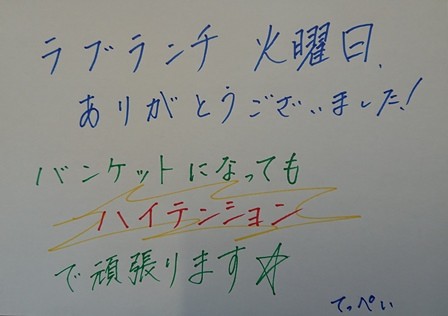 ラブランチ 火曜日、
ありがとうございました!
バンケットになっても
ハイテンション
で頑張ります☆
てっぺい